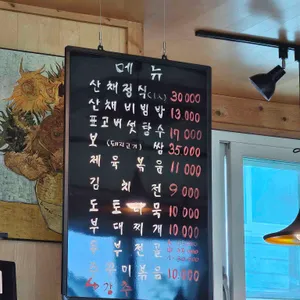 메뉴
산채정식(1人) 30.000
산채비빔밥 13.000
표고버섯탕수 17.000
보(돼지고기)쌈 35.000
제육볶음 11.000
김치전 9.000
도토리묵 10.000
부대찌개 10.000
두부전골
볶음 10.000
감추